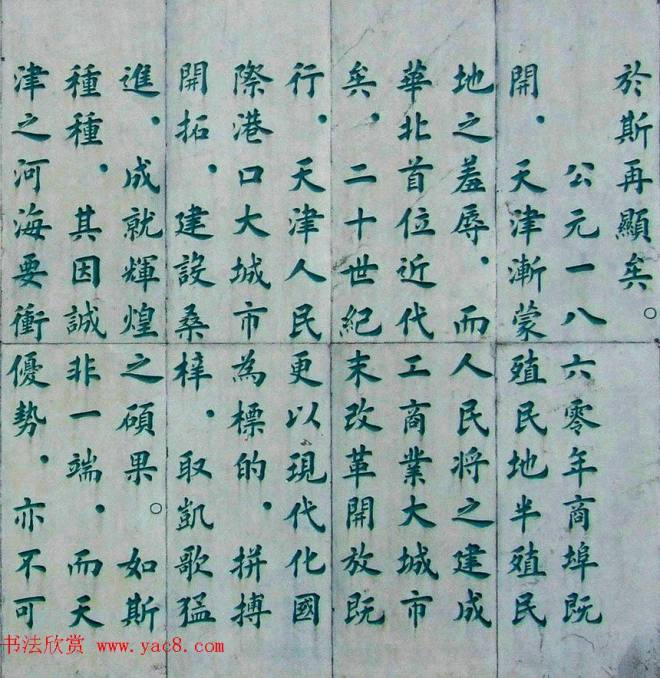 於斯再顯矣。
公元一八六零年商埠既
開，天津漸蒙殖民地半殖民
地之羞辱，而人民將之建成
華北首位近代工商業大城市
矣，二十世紀末改革開放既
行，天津人民更以現代化國
際港口大城市為標的，拼搏
開拓，建設桑梓，取凱歌猛
進，成就輝煌之碩果。如斯
種種，其因誠非一端，而天
津之河海要衝優勢，亦不可
书法欣赏 www.yac8.com